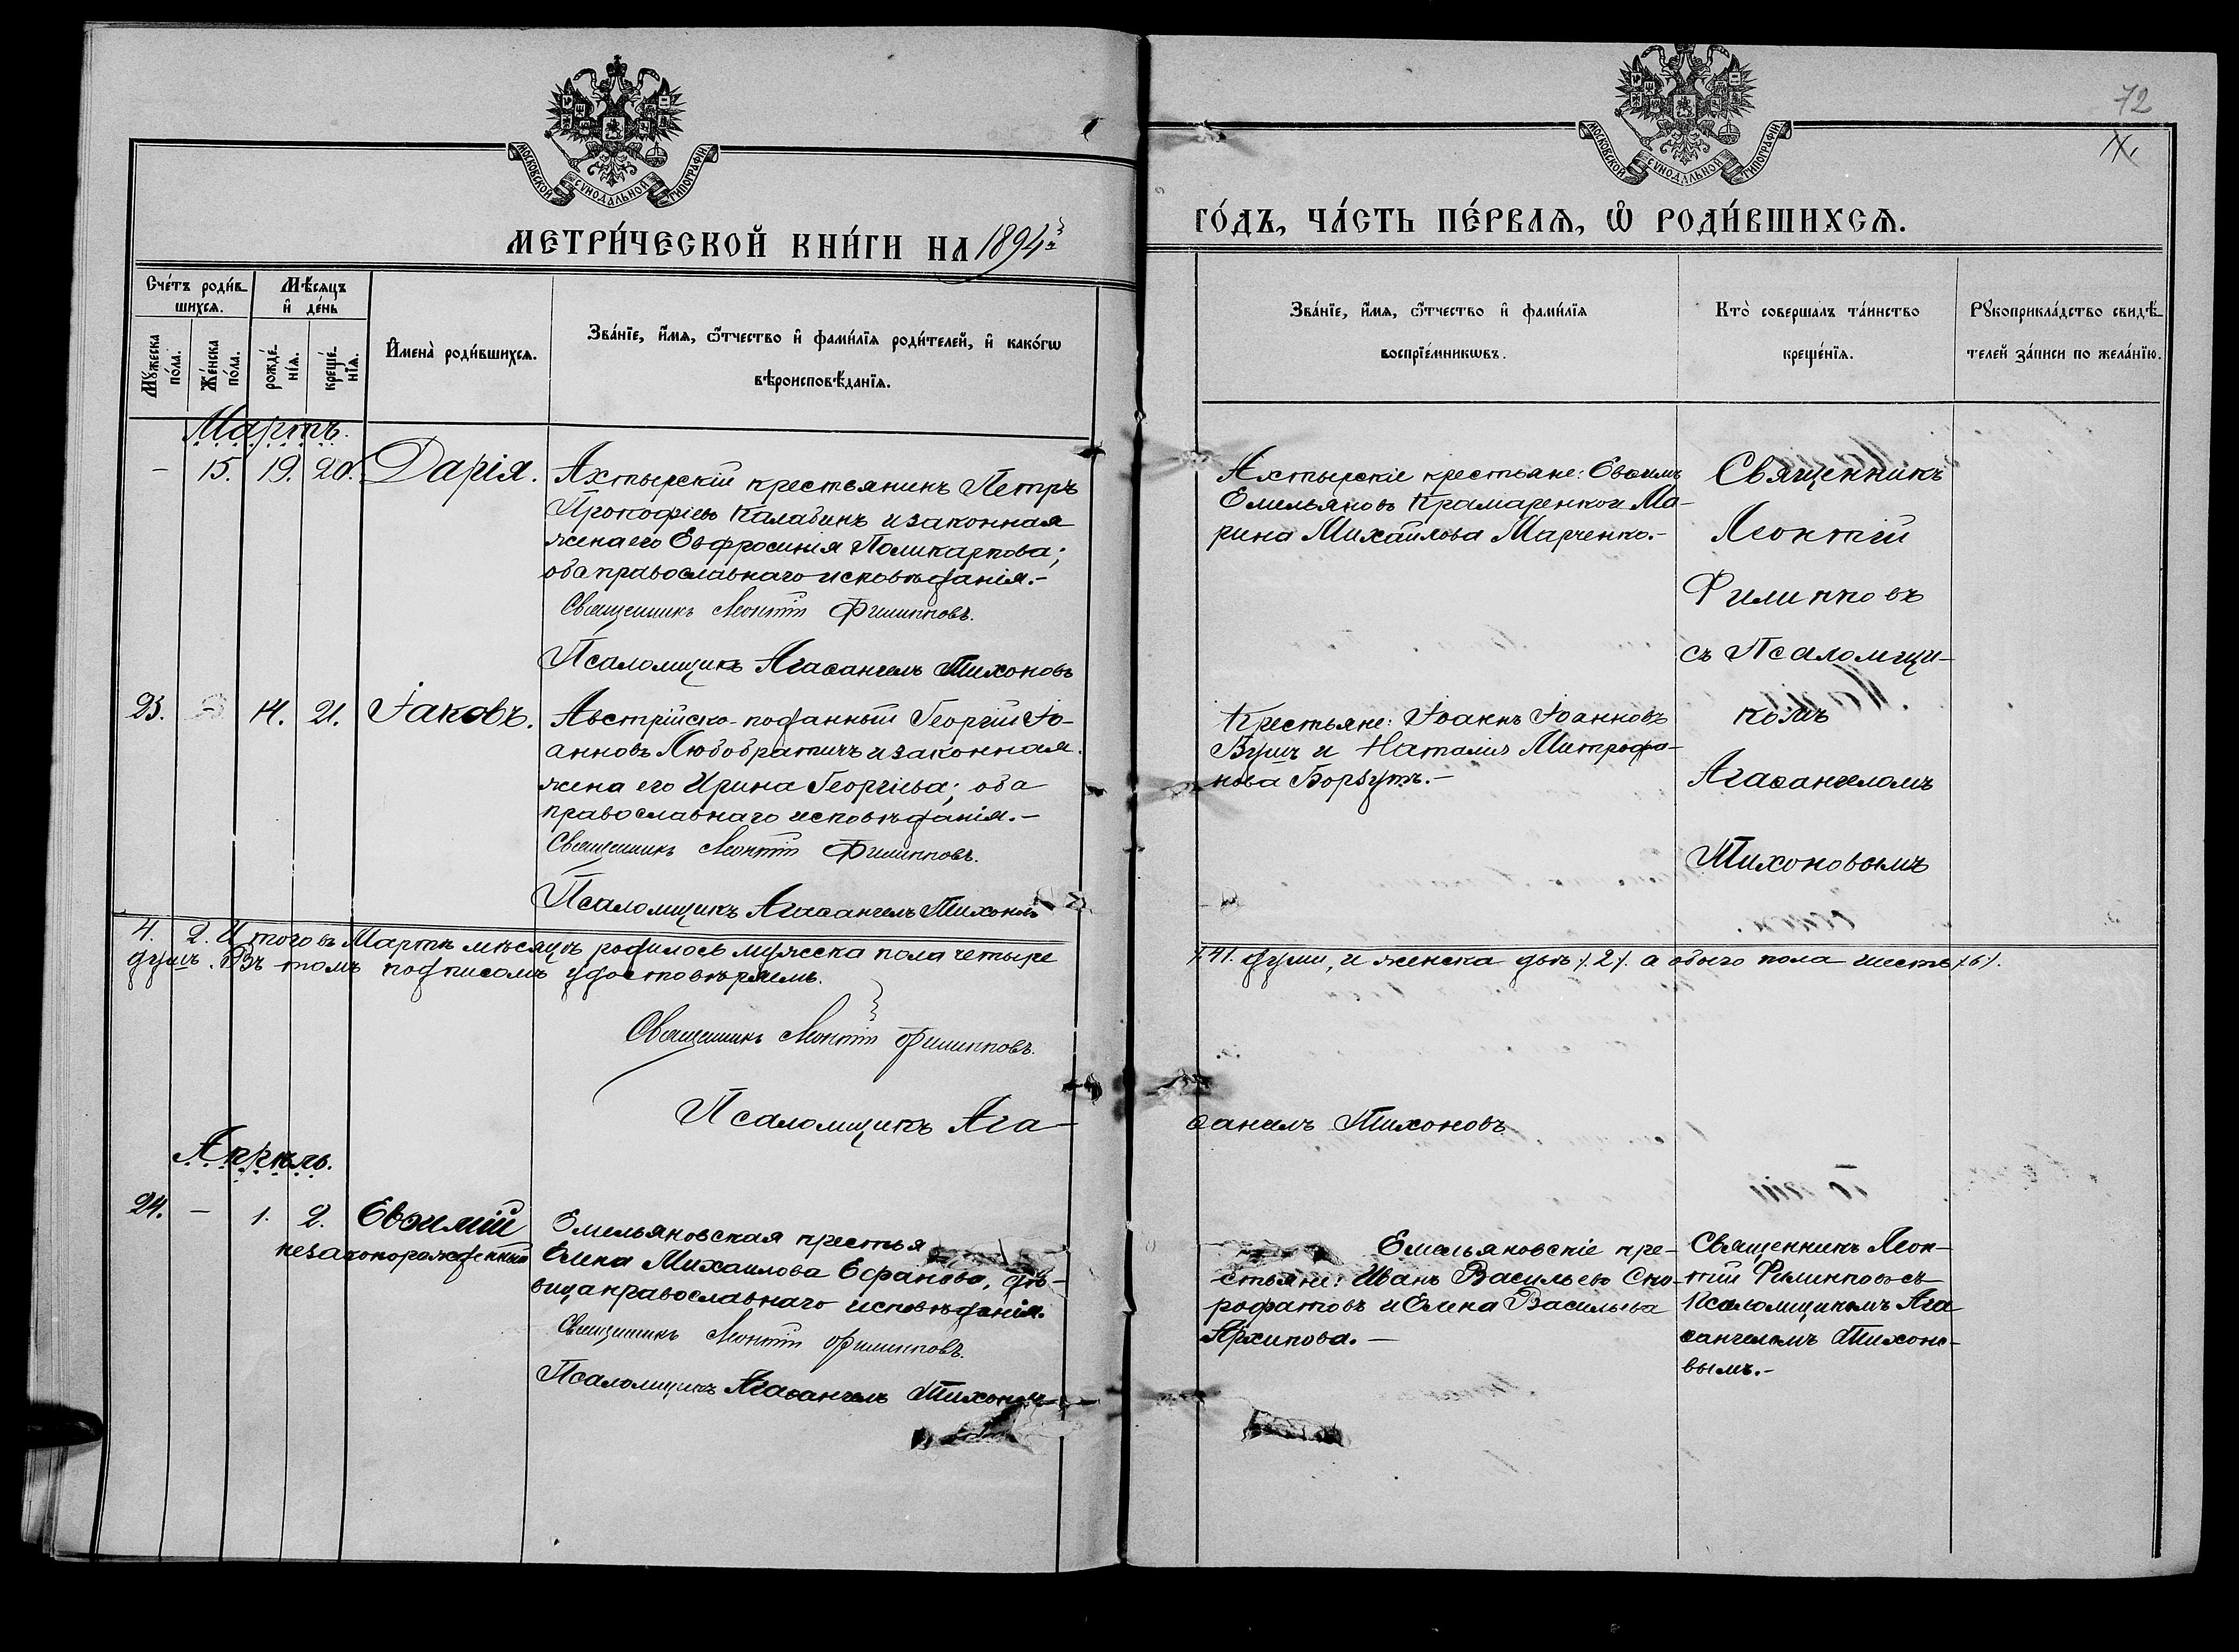 72
IX
МОСКОВСКОЙ СУНОДАЛЬНОЙ ТИПОГРАФІИ.
МОСКОВСКОЙ СУНОДАЛЬНОЙ ТИПОГРАФІИ.
МЕТРИ́ЧЕСКОЙ КНИ́ГИ НА 1894й
ГО́ДЪ, ЧА́СТЬ ПЕ́РВАѦ, Ѡ҆ РОДИ́ВШИХСѦ.
Сче́тъ роди́в-
шихсѧ.
Мѣ́сѧцъ
и҆ де́нь
Мꙋ́жеска
по́ла.
Же́нска
по́ла.
рожде́-
нїѧ.
креще́-
нїѧ.
И҆мена̀ роди́вшихсѧ.
Зва́нїе, и҆́мѧ, ѻ҆́тчество и҆ фами́лїѧ роди́телей, и҆ како́гѡ
вѣроисповѣ́данїѧ.
Зва́нїе, и҆́мѧ, ѻ҆́тчество и҆ фами́лїѧ
воспрїе́мникѡвъ.
Кто̀ совершалъ та́инство
креще́нїѧ.
Рꙋкоприкла́дство свидѣ́-
телей за́писи по жела́нїю.
Мартъ.
– 15. 19. 20. Дарія.
Ахтырскій крестьянинъ Петръ
Прокофіевъ Калабинъ и законная
жена его Евфросинія Поликарпова;
оба православнаго исповѣданія.–
Священникъ Леонтій Филипповъ.
Псаломщикъ Агаѳангелъ Тихоновъ
Ахтырскіе крестьяне: Евѳимъ
Емельяновъ Крамаренко и Ма-
рина Михаилова Марченко.–
Священникъ
Леонтій
Филипповъ
съ Псаломщи-
комъ
Агаѳангеломъ
Тихоновымъ
23. – 14. 21. Іаковъ.
Австрійско-подданный Георгій Іо-
анновъ Любобратичъ и законная
жена его Ирина Георгіева; оба
православнаго исповѣданія.–
Священникъ Леонтій Филипповъ.
Псаломщикъ Агаѳангелъ Тихоновъ
Крестьяне: Іоаннъ Іоанновъ
и Наталія Митрофа-
нова
4. 2. Итого въ Мартѣ мѣсяцѣ родилось мужеска пола четыре
/.4/. души, и женска двѣ /.2/. а обоего пола шесть /.6/.
душъ. Въ томъ подписомъ удостовѣряемъ.
Священникъ Леонтій Филипповъ.
Псаломщикъ Ага-
ѳангелъ Тихоновъ
Апрѣль.
24. – 1. 2. Евѳимій
незаконорожденный
Емельяновская крестья
Елена Михаилова дѣ-
вица православнаго исповѣданія.
Священникъ Леонтій Филипповъ.
Псаломщикъ Агаѳангелъ Тихоновъ
Емельяновскіе кре-
стьяне: Иванъ Васильевъ Ско-
родатовъ и Елена Васильева
Архипова.–
Священникъ Леон-
тій Филипповъ съ
Псаломщикомъ Ага
ѳангеломъ Тихоно-
вымъ.–